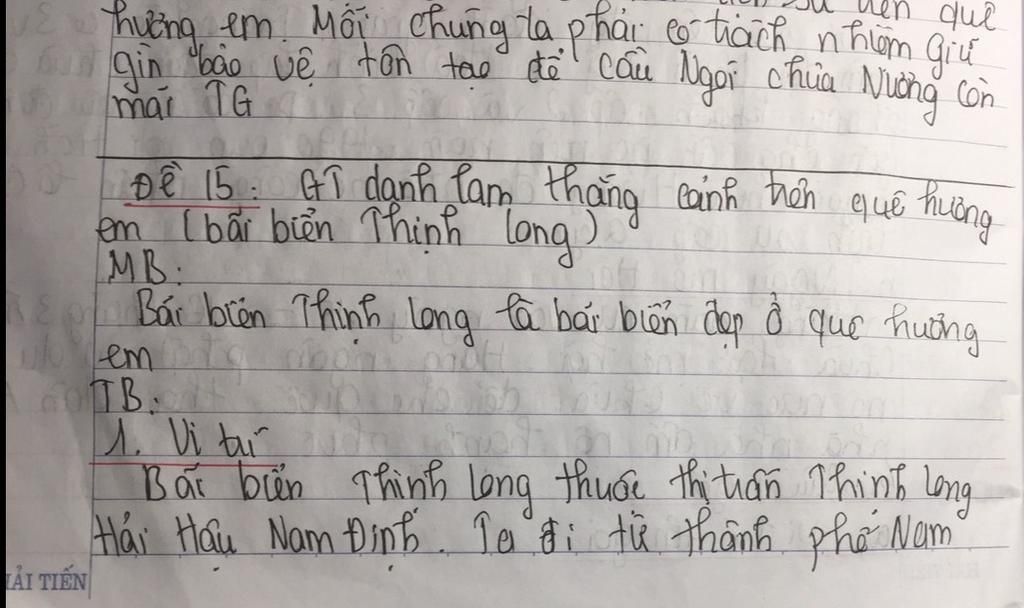 quê
hương em. Mỗi chúng ta phải có trách nhiệm giữ
gìn bảo vệ tôn tạo để cầu Ngói chùa Nương còn
mãi TG
Đề 15: GT danh lam thắng cảnh trên quê hương
em (bãi biển Thịnh long)
MB:
Bãi biển Thịnh long là bãi biển đẹp ở quê hương
em
TB:
1. Vị trí
Bãi biển Thịnh long thuộc thị trấn Thịnh long
Hải Hậu Nam Định. Ta đi từ thành phố Nam
HẢI TIẾN